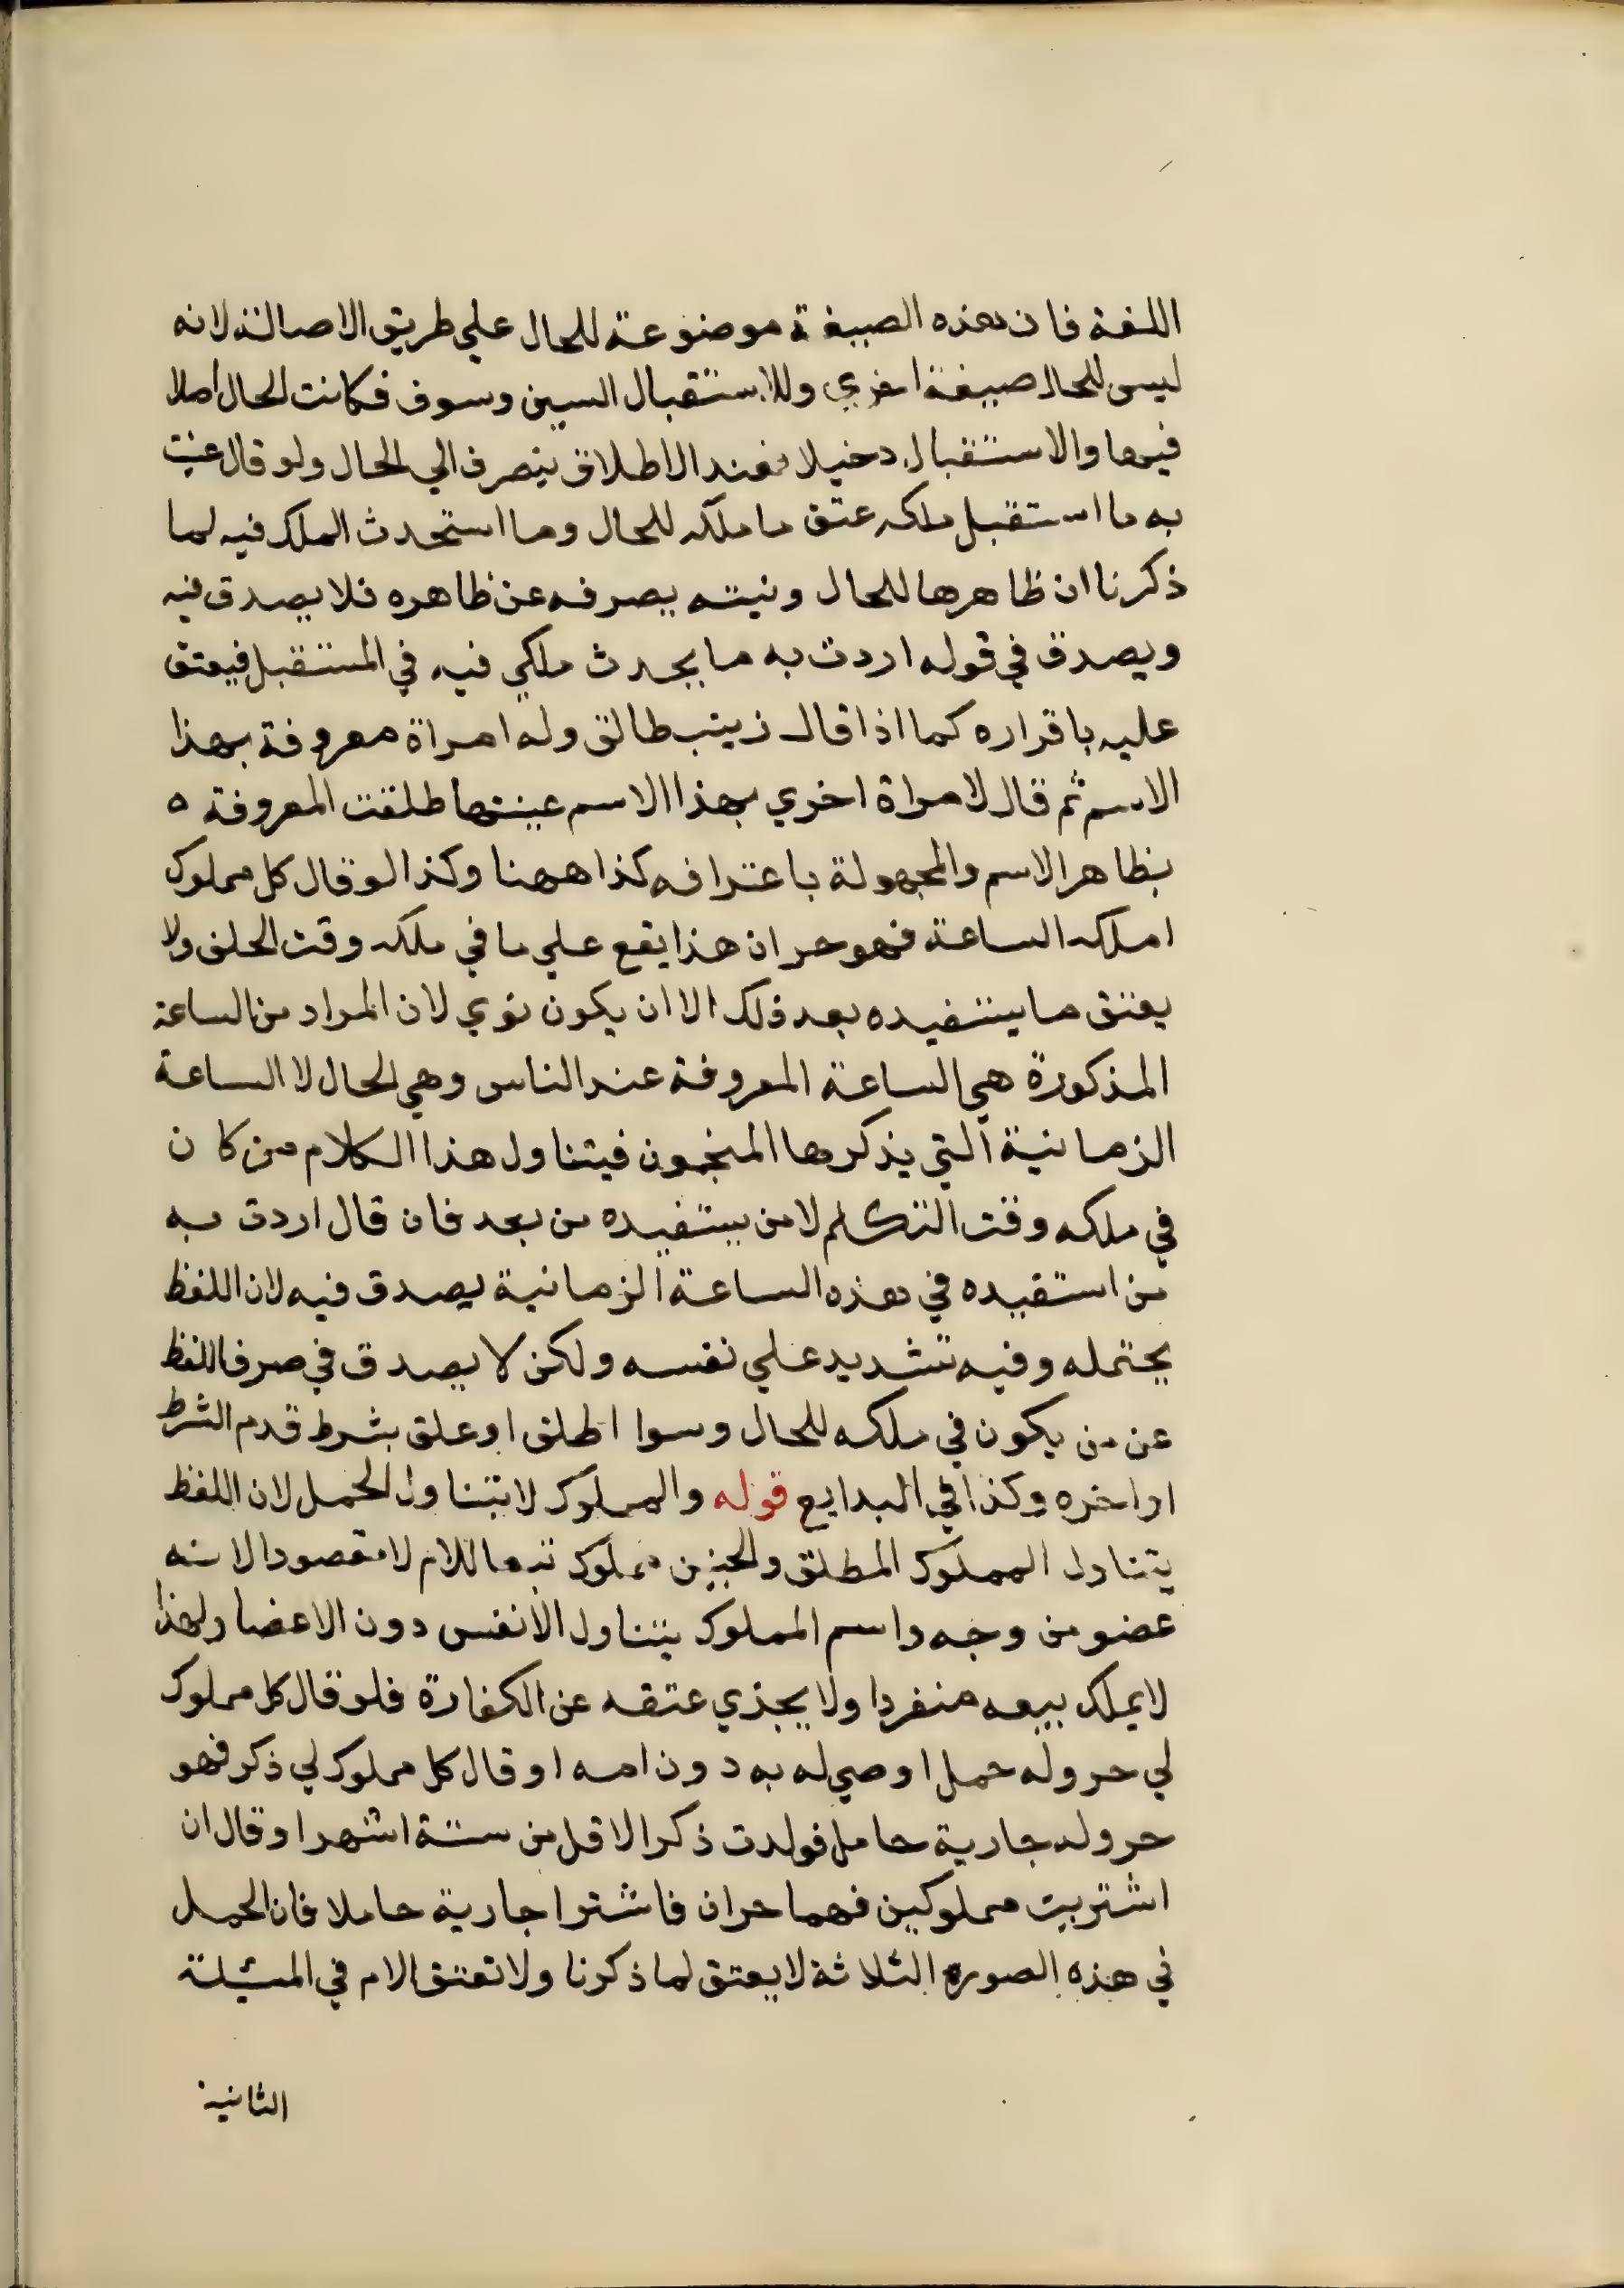 اللغة فان هذه الصيغة موضوعة للحال علي طريق الاصالة لانه
ليس للحال صيغة اخري وللاستقبال السين وسوف فكانت الحال اصلا
فيها والاستقبال دخيلا فعند الاطلاق ينصرف الي الحال ولو قال عنيت
به ما استقبل ملكه عتق ما ملكه للحال وما استحدث الملك فيه لما
ذكرنا ان ظاهرها للحال ونيته يصرفه عن ظاهره فلا يصدق فيه
ويصدق في قوله اردت به ما يحدث ملكي فيه في المستقبل فيعتق
عليه باقراره كما اذا قال زينب طالق وله امراة معروفة بهذا
الاسم ثم قال لامراة اخري بهذا الاسم عينتها طلقت المعروفة ه
بظاهر الاسم والمجهولة باعترافه كذا ههنا وكذا لو قال كل مملوك
املكه الساعة فهو حر ان هذا يقع علي ما في ملكه وقت الحلف ولا
يعتق ما يستفيده بعد ذلك الا ان يكون نوي لان المراد من الساعة
المذكورة هي الساعة المعروفة عند الناس وهي الحال لا الساعة
الزمانية التي يذكرها المنجمون فيتناول هذا الكلام من كان
في ملكه وقت التكلم لا من يستفيده من بعد فان قال اردت به
من استفيده في هذه الساعة الزمانية يصدق فيه لان اللفظ
يحتمله وفيه تشديد علي نفسه ولكن لا يصدق في صرف اللفظ
عن من يكون في ملكه للحال وسوا اطلق او علق بشرط قدم الشرط
او اخره وكذا في البدايع قوله والمملوك لا يتناول الحمل لان اللفظ
يتناول المملوك المطلق والجنين مملوك تبعا للام لا مقصودا لانه
عضو من وجه واسم المملوك يتناول الانفس دون الاعضا ولهذا
لا يملك بيعه منفردا ولا يجزي عتقه عن الكفارة فلو قال كل مملوك
لي حر وله حمل اوصي له به دون امه او قال كل مملوك لي ذكر فهو
حر وله جارية حامل فولدت ذكرا لاقل من ستة اشهر او قال ان
اشتريت مملوكين فهما حران فاشترا جارية حاملا فان الحمل
في هذه الصوره الثلاثة لا يعتق لما ذكرنا ولا تعتق الام في المسئلة
الثانية